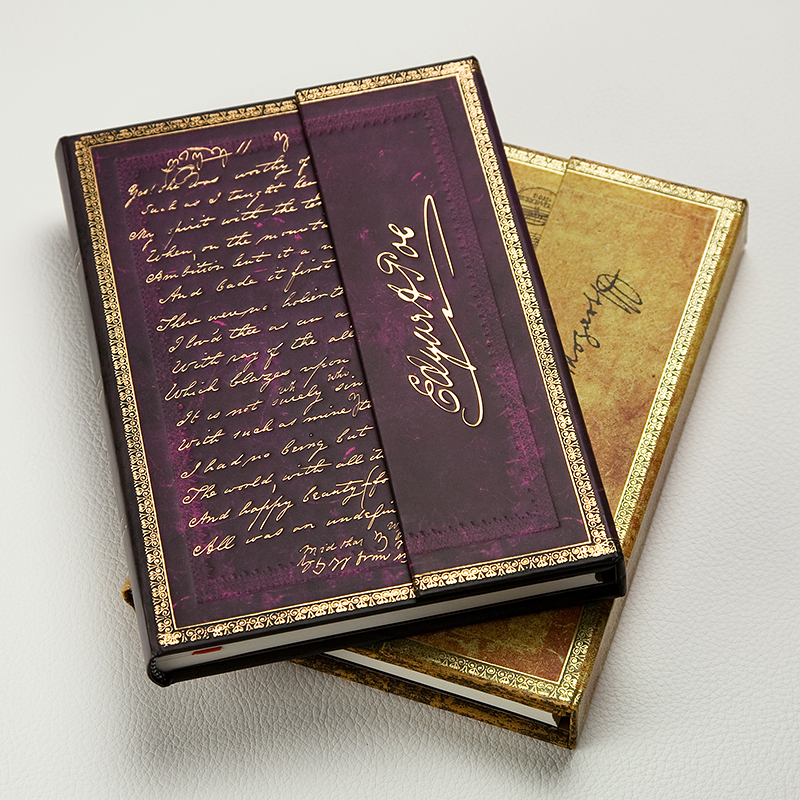 Yes! she was worthy of
Such as is taught hea
My spirit with the to
When, on the mounta
Ambition lent it a n
And bade it first
There were no holier
I lov'd thee as an a
With ray of the all
Which blazes upon
It is not surely sin
With such as mine
I had no being but
The world, with all it
And happy beauty (for
All was an undefin
Mid that w
from
Edgar A Poe